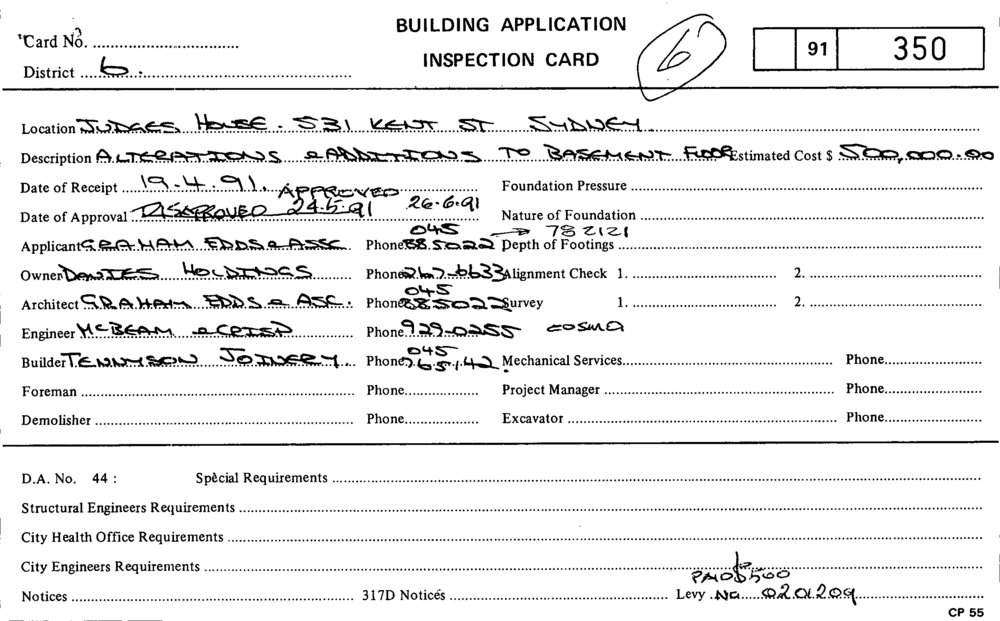 BUILDING APPLICATION
Card No.
INSPECTION CARD
6
91 350
District 6.
Location JUDGES HOUSE. 531 KENT ST SYDNEY.
Description ALTERATIONS & ADDITIONS TO BASEMENT FLOOR Estimated Cost $ 500,000.00
Date of Receipt 19.4.91. APPROVED Foundation Pressure
Date of Approval DISAPPROVED 24.5.91 26.6.91 Nature of Foundation
045 → 782121
Applicant GRAHAM EDDS & ASSC Phone 885022 Depth of Footings
Owner DAVIES HOLDINGS Phone 267-6633 Alignment Check 1. 2.
045
Architect GRAHAM EDDS & ASC. Phone 885022 Survey 1. 2.
Engineer McBEAM & CRISP Phone 929-0255 COSMA
045
Builder TENNYSON JOINERY. Phone 765142 Mechanical Services Phone
Foreman Phone Project Manager Phone
Demolisher Phone Excavator Phone
D.A. No. 44 : Special Requirements
Structural Engineers Requirements
City Health Office Requirements
City Engineers Requirements
PAID $500
Notices 317D Notices Levy No 0201209
CP 55